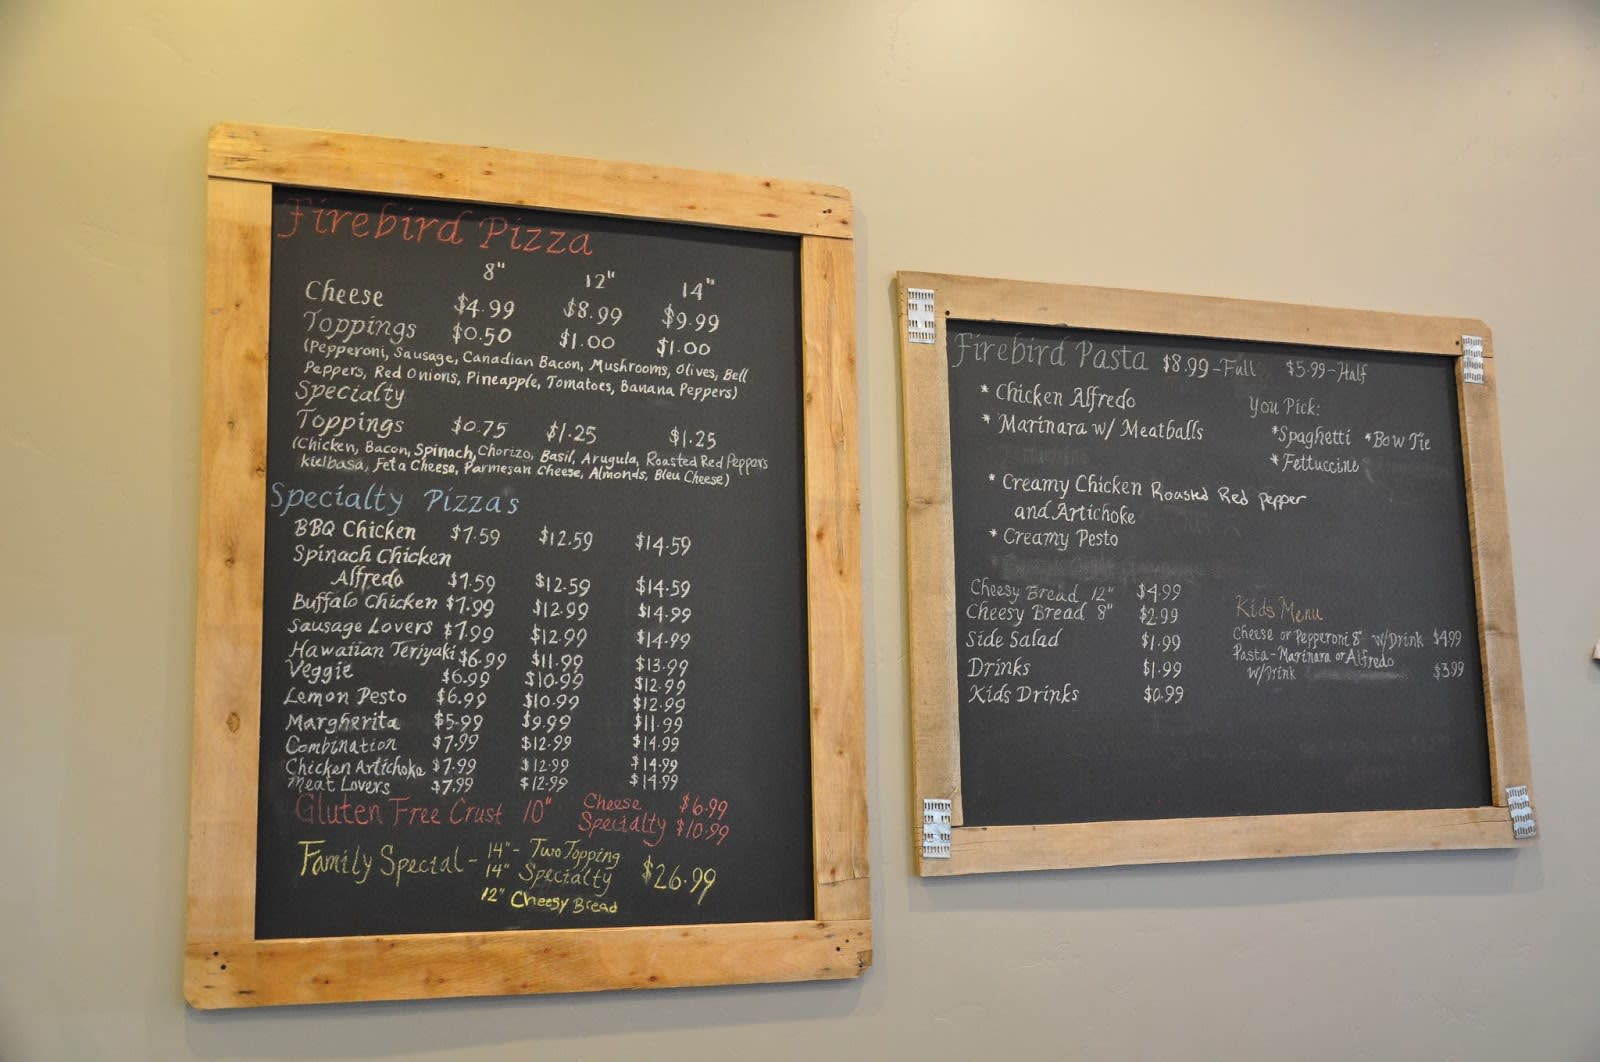 Firebird Pizza
8" 12" 14"
Cheese $4.99 $8.99 $9.99
Toppings $0.50 $1.00 $1.00
(Pepperoni, Sausage, Canadian Bacon, Mushrooms, Olives, Bell
Peppers, Red Onions, Pineapple, Tomatoes, Banana Peppers)
Specialty
Toppings $0.75 $1.25 $1.25
(Chicken, Bacon, Spinach, Chorizo, Basil, Arugula, Roasted Red Peppers
Kielbasa, Feta Cheese, Parmesan Cheese, Almonds, Bleu Cheese)
Specialty Pizza's
BBQ Chicken $7.59 $12.59 $14.59
Spinach Chicken
Alfredo $7.59 $12.59 $14.59
Buffalo Chicken $7.99 $12.99 $14.99
Sausage Lovers $7.99 $12.99 $14.99
Hawaiian Teriyaki $6.99 $11.99 $13.99
Veggie $6.99 $10.99 $12.99
Lemon Pesto $6.99 $10.99 $12.99
Margherita $5.99 $9.99 $11.99
Combination $7.99 $12.99 $14.99
Chicken Artichoke $7.99 $12.99 $14.99
Meat Lovers $7.99 $12.99 $14.99
Gluten Free Crust 10" Cheese $6.99
Specialty $10.99
Family Special - 14" - Two Topping
14" Specialty $26.99
12" Cheesy Bread
Firebird Pasta $8.99-Full $5.99-Half
* Chicken Alfredo
* Marinara w/ Meatballs
* Creamy Chicken Roasted Red Pepper
and Artichoke
* Creamy Pesto
You Pick:
*Spaghetti *Bow Tie
*Fettuccine
Cheesy Bread 12" $4.99
Cheesy Bread 8" $2.99
Side Salad $1.99
Drinks $1.99
Kids Drinks $0.99
Kids Menu
Cheese or Pepperoni 8" w/Drink $4.99
Pasta-Marinara or Alfredo
w/Drink $3.99